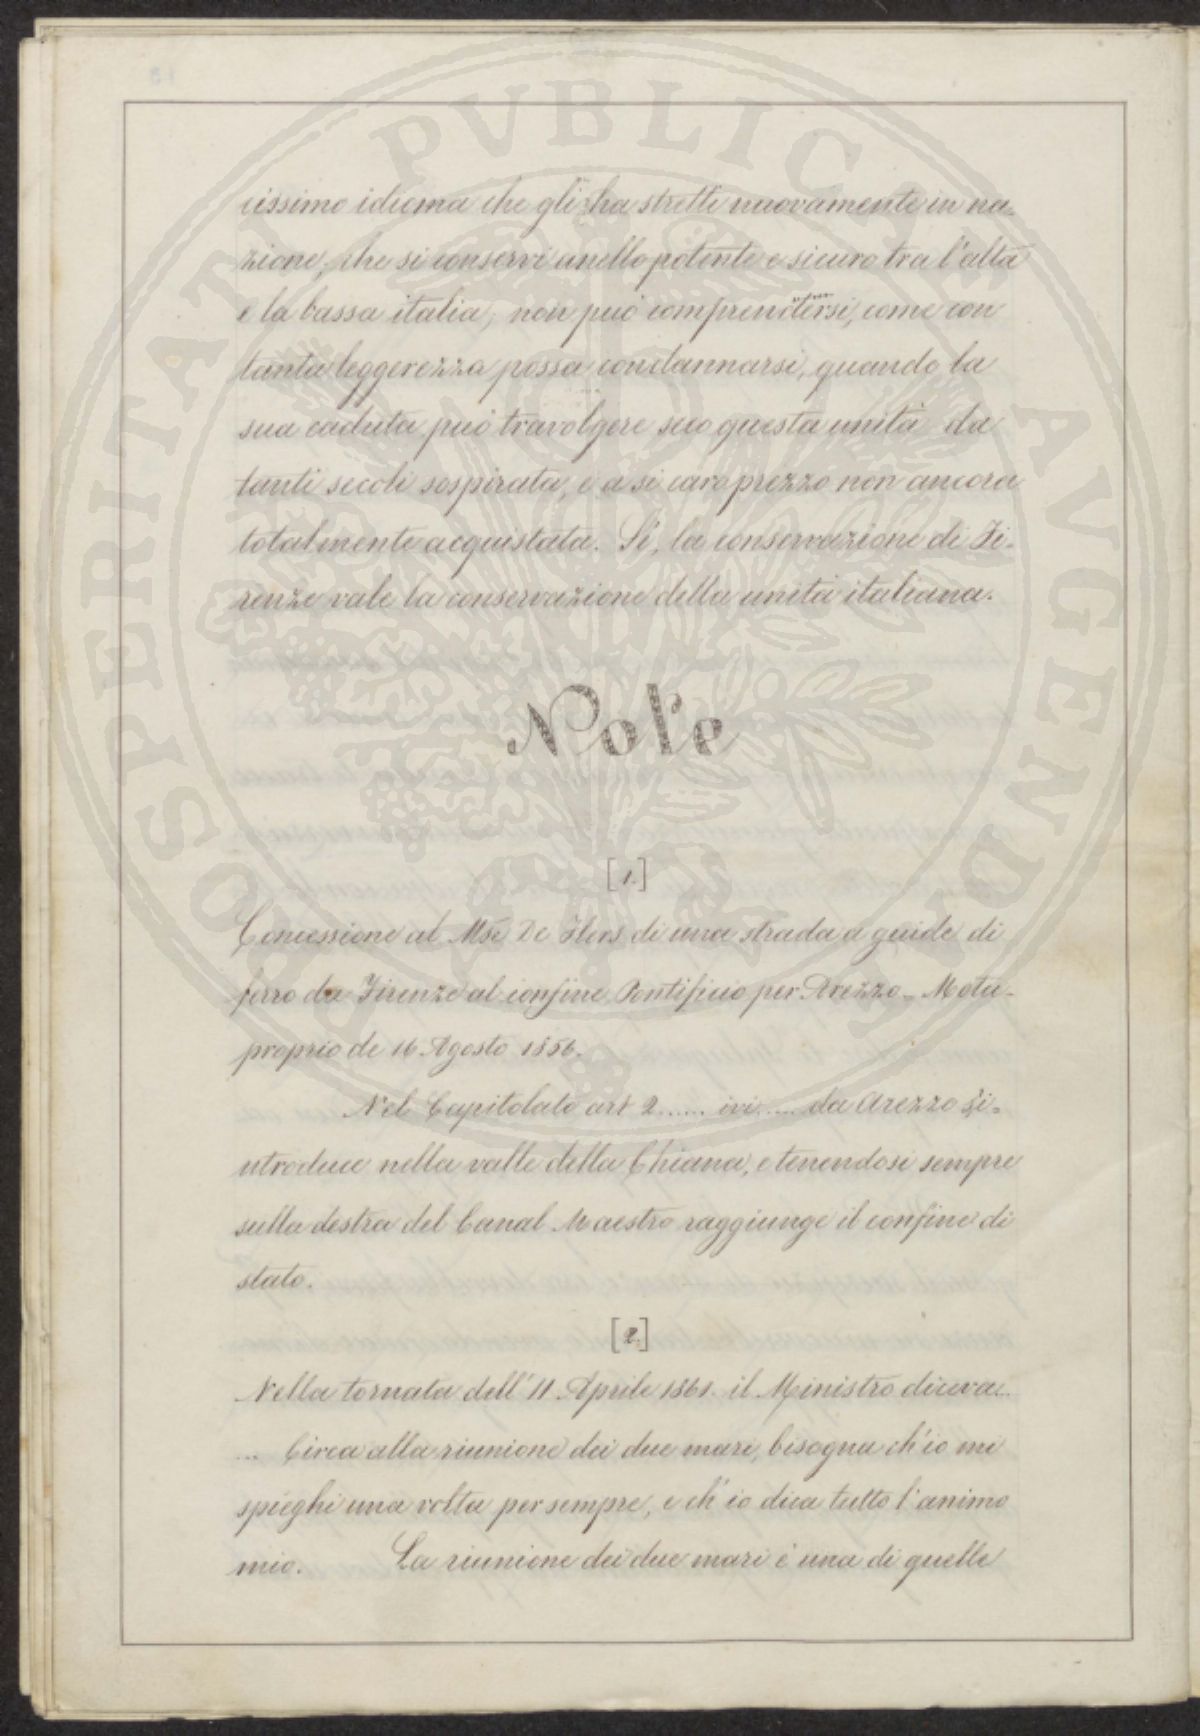 cissimo idioma che gli ha stretti nuovamente in na-
zione; che si conservi anello potente e sicuro tra l'alta
e la bassa italia; non può comprendersi, come con
tanta leggerezza possa condannarsi, quando la
sua caduta può travolgere seco questa unità da
tanti secoli sospirata, e a si caro prezzo non ancora
totalmente acquistata. Si, la conservazione di Fi-
renze vale la conservazione della unità italiana.
Note
[1.]
Concessione al Mse De Flers di una strada a guide di
ferro da Firenze al confine Pontificio per Arezzo - Motu-
proprio de 16 Agosto 1856.
Nel Capitolato art 2...... ivi..... da Arezzo s'i-
ntroduce nella valle della Chiana, e tenendosi sempre
sulla destra del Canal Maestro raggiunge il confine di
stato.
[2.]
Nella tornata dell' 11 Aprile 1861. il Ministro diceva..
... Circa alla riunione dei due mari, bisogna ch'io mi
spieghi una volta per sempre, e ch'io dica tutto l'animo
mio. La riunione dei due mari è una di quelle
PROSPERITATI PVBLICAE AVGENDAE